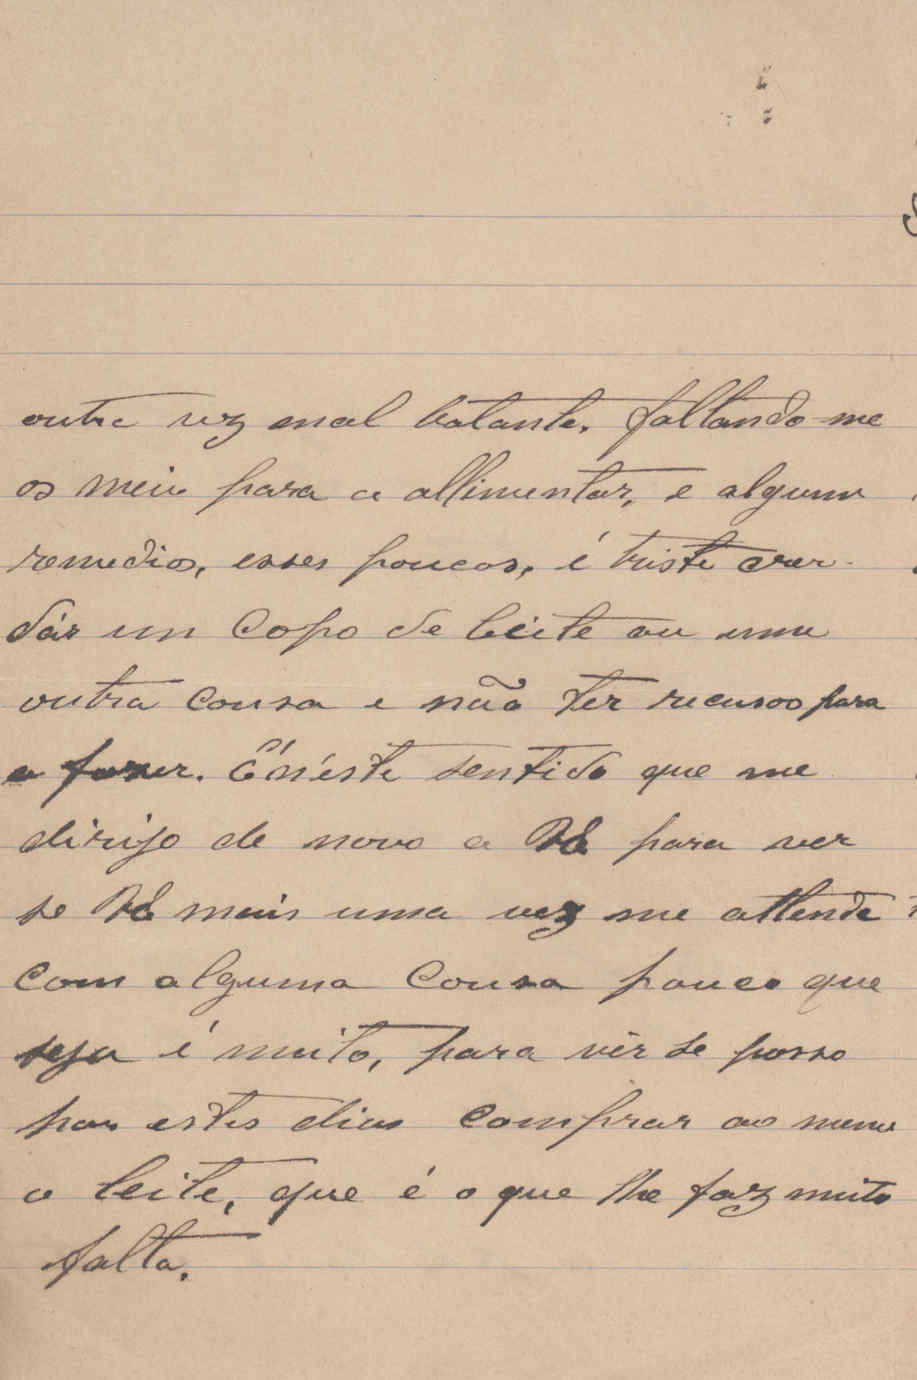 outra vez mal batante. faltando-me
os meis para a allimentar, e alguns
remedios, esses poucos, é triste crer
dár um copo de leite ou uma
outra cousa e não ter recusos para
o fazer. É n'éste sentido que me
dirijo de novo a para ver
se mais uma vez me attende
com alguma cousa pouco que
seja é muito, para vêr se posso
por estes dias comprar ao menu
o leite, que é o que lhe faz muito
falta.